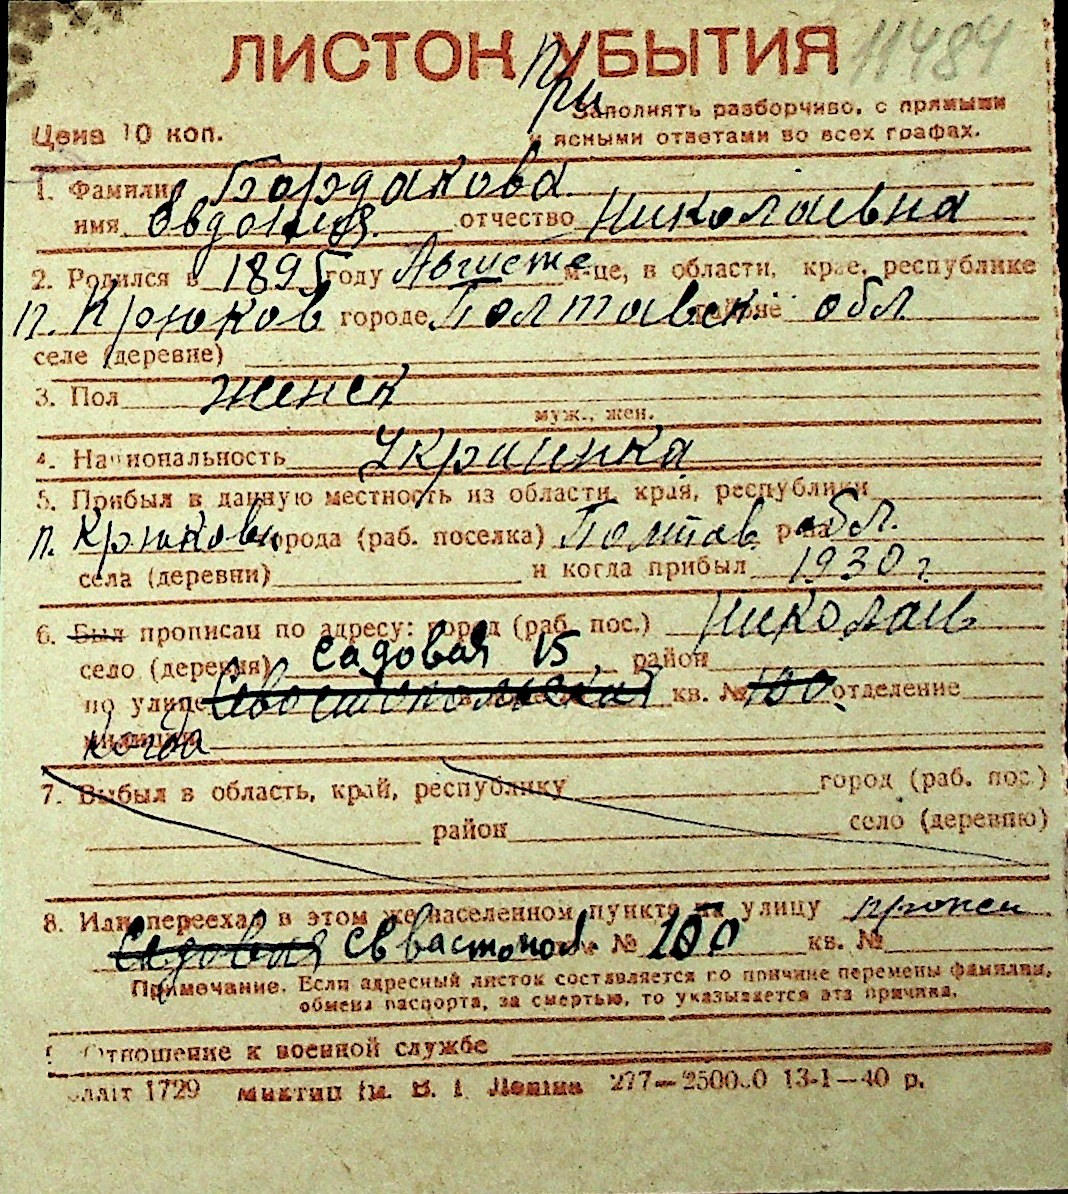 ЛИСТОК УБЫТИЯ 11484
при
Заполнять разборчиво, с прямыми
Цена 10 коп. и ясными ответами во всех графах.
1. Фамилия Бордакова
имя Овдокия отчество Николаевна
2. Родился в 1895 году Августе м-це, в области, крае, республике
п. Крюков городе Полтавск. районе обл
селе (деревне)
3. Пол женск
муж., жен.
4. Национальность Украинка
5. Прибыл в данную местность из области, края, республики
п. Крюкови города (раб. поселка) Полтав. р-на обл.
села (деревни) и когда прибыл 1930 г
6. Был прописан по адресу: город (раб. пос.) Николаев
село (деревня) Садовая 15, район
по улице Севостопольская кв. № 100. отделение
милиции
7. Выбыл в область, край, республику город (раб. пос.)
район село (деревню)
8. Или переехал в этом же населенном пункте на улицу
Садовая Севвастопол. № 100 кв. №
Примечание. Если адресный листок составляется по причине перемены фамилии,
обмена паспорта, за смертью, то указывается эта причина.
Отношение к военной службе
1729 277—250000 13-1—40 р.